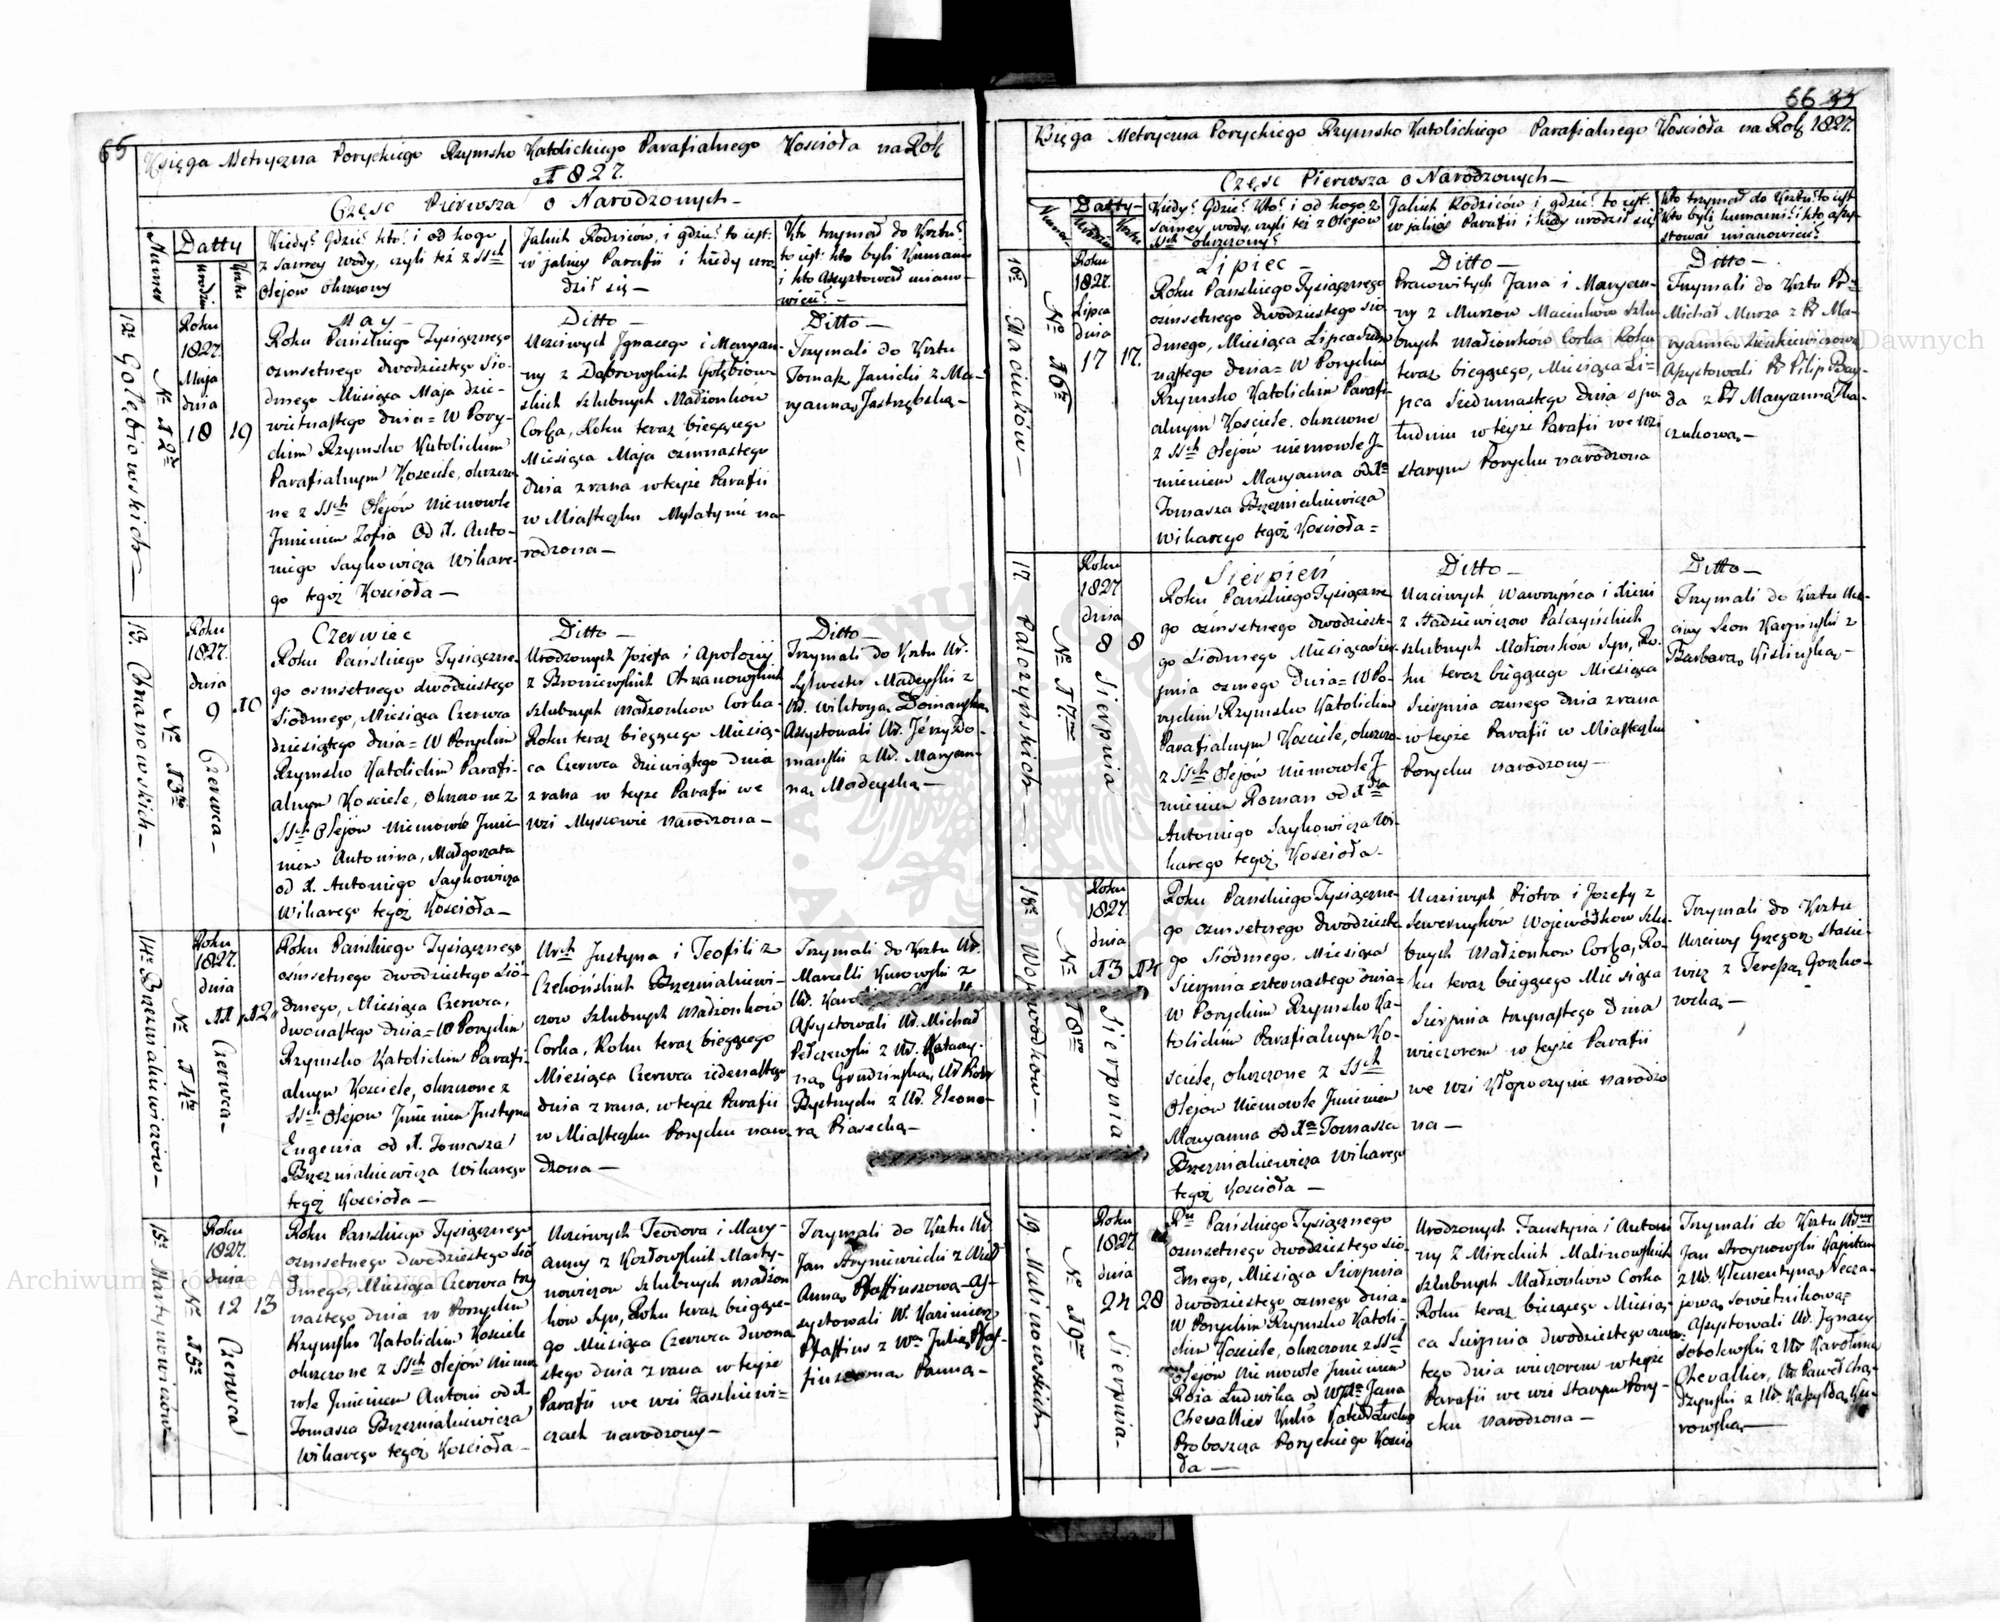 65
Księga Metryczna Poryckiego Rzymsko Katolickiego Parafialnego Kościoła na Rok
1827.
Część Pierwsza o Narodzonych
Numer
Datty
urodz:
Krztu
Kiedy? Gdzie? kto? i od kogo
z samey wody, czyli też z SSch
Olejow okrzczony
Jakich Rodziców, i gdzie? to iest:
w jakiey Parafii i kiedy uro
dził się
Kto trzymał do Krztu?
to iest: kto byli Kumami
i kto Assystował miano-
wicie?
12. Gołębiowskich
No 12
Roku
1827.
Maja
dnia
18
19
May
Roku Pańskiego Tysiącznego
ośmsetnego dwódziestego Sió-
dmego Miesiąca Maja dzie-
wietnastego dnia = W Pory-
ckim Rzymsko Katolickim
Parafialnym Kosciele, okrzczo
ne z SSch Olejów Niemowle
Jmieniem Zofia Od X. Anto-
niego Saykowicza Wikare-
go tegoż Kościoła
Ditto
Uczciwych Jgnacego i Maryan-
ny z Dąbrowskich Gołębiow
skich szlubnych Małżonków
Corka, Roku teraz biegącego
Miesiąca Maja ośmnastego
dnia z rana w teyże Parafii
w Miasteczku Mysatynie na-
rodzona
Ditto
Trzymali do Krztu
Tomasz Janicki z Ma-
ryanną Jastrzębską
13. Chranowskich
No 13
Roku
1827.
dnia
9
10
Czerwca
Czerwiec
Roku Pańskiego Tysiączne-
go osmsetnego dwodziestego
Siódmego, Miesiąca Czerwca
dziesiątego dnia = W Poryckim
Rzymsko Katolickim Parafi-
alnym Kosciele, okrzczone z
SSch Olejów Niemowle Jmie-
niem Antonina, Małgorzata
od X. Antoniego Saykowicza
Wikarego tegoż Kościoła
Ditto
Urodzonych Jozefa i Apolonij
z Broniewskich Chranowskich
szlubnych Małżonkow Corka
Roku teraz biegącego Miesią-
ca Czerwca dziewiątego dnia
z rana w teyże Parafii we
wsi Myscowie narodzona
Ditto
Trzymali do Krztu Ur.
Sylwester Madeyski z
Ur. Wiktoryą Domańską
Assystowali Ur. Jérzy Do-
mański z Ur. Maryan-
ną Madeyską
14. Brzezniakiewiczow
No 14
Roku
1827.
dnia
11
12
Czerwca
Roku Pańskiego Tysiącznego
ośmsetnego dwodziestego Sió-
dmego, Miesiąca Czerwca,
dwónastego dnia = W Poryckim
Rzymsko Katolickim Parafi-
alnym Kosciele, okrzczone z
SSch Olejow Jmieniem Justyna
Eugenia od X. Tomasza
Brzezniakiewicza Wikarego
tegoż Kościoła
Urch Justyna i Teofili z
Czekońskich Brzezniakiewi-
czow szlubnych Małżonków
Corka, Roku teraz biegącego
Miesiąca Czerwca iedenastego
dnia z rana, w teyże Parafii
w Miasteczku Porycku naro-
dzona
Trzymali do Krztu Ur.
Marcelli Kurowski z
Ur.
Assystowali Ur. Michał
Pełczewski z Ur. Katarzy-
ną Grudzińską, Ur Piotr
Bystrycki z Ur. Eleono-
rą Piasecką
15. Martynowiczow
No 15
Roku
1827.
dnia
12
13
Czerwca
Roku Pańskiego Tysiącznego
ośmsetnego dwodziestego Sió
dmego, Miesiąca Czerwca trzy
nastego dnia w Poryckim
Rzymsko Katolickim Kosciele
okrzczone z SSch olejow niemo
wle Jmieniem Antoni od X.
Tomasza Brzezniakiewicza
Wikarego tegoż Kościoła
Uczciwych Teodora i Mary-
anny z Kozłowskich Marty-
nowiczow szlubnych małżon
ków Syn, Roku teraz biegące-
go Miesiąca Czerwca dwuna
stego dnia z rana w teyże
Parafii we wsi Zaszkiewi-
czach narodzony
Trzymali do Krztu Ur.
Jan
Anną Pfaffiuszową As-
systowali Ur. Kazimierz
Pfaffius z Wą Julią Pfaf-
fiuszowną Panną
66 35
Księga Metryczna Poryckiego Rzymsko Katolickiego Parafialnego Kościoła na Rok 1827.
Część Pierwsza o Narodzonych
Numer
Datty
urodzin
Krztu
Kiedy? Gdzie? Kto? i od kogo z
samey wody, czyli też z Olejów
SSch okrzczony?
Jakich Rodziców i gdzie? to iest:
w jakiéy Parafii i kiedy urodził się?
Kto trzymał do Krztu? to iest
Kto byli kumami? i kto assy-
stował mianowicie?
16. Maciuków
No 16
Roku
1827.
Lipca
dnia
17
17.
Lipiec
Roku Pańskiego Tysiącznego
ośmsetnego dwodziestego sió-
dmego, Miesiąca Lipca siedm
nastego dnia = W Poryckim
Rzymsko Katolickim Parafi-
alnym Kosciele, okrzczone
z SSch Olejów niemowle J-
mieniem Maryanna od Xa
Tomasza Brzezniakiewicza
Wikarego tegoż Kościoła =
Ditto
Pracowitych Jana i Maryan-
ny z Murzow Maciukow szlu-
bnych małżonków Corka Roku
teraz biegącego, Miesiąca Li-
pca Siedmnastego dnia o po-
łudniu w teyże Parafii we wsi
starym Porycku narodzona
Ditto
Trzymali do Krztu
Michał Murza z Ma-
ryanną
Assystowali Filip Bay-
da z Maryanną
17. Palczyńskich
No 17.
Roku
1827
dnia
8
8
Sierpnia
Sierpień
Roku Pańskiego Tysiączne
go ośmsetnego dwodziest-
go Siodmego Miesiąca Sier-
pnia osmego dnia = W Po-
ryckim Rzymsko Katolickim
Parafialnym Kosciele, okrzczo-
z SSch Olejów Niemowle J-
mieniem Roman od Xdza
Antoniego Saykowicza Wi-
karego tegoż Kościoła
Ditto
Uczciwych Wawrzyńca i
z Hadziewiczow Palczyńskich
szlubnych Małżonków Syn, Ro-
ku teraz biegącego Miesiąca
Sierpnia osmego dnia z rana
w teyże Parafii w Miasteczku
Porycku narodzony
Ditto
Trzymali do Krztu Ucz-
ciwy Leon Karpiński z
Barbarą Kislinską
18. Woiewodków
No 18
Roku
1827.
dnia
13
14
Sierpnia
Roku Pańskiego Tysiączne-
go ośmsetnego dwodziest-
go Siódmego, Miesiąca
Sierpnia czternastego dnia
W Poryckim Rzymsko Ka-
tolickim Parafialnym Ko-
sciele, okrzczone z SSch
Olejow Niemowle Jmieniem
Maryanna od Xa Tomasza
Brzezniakiewicza Wikarego
tegoż Kościoła
Uczciwych Piotra i Jozefy z
Sewerynków Wojewódkow szlu-
bnych Małżonkow Corka, Ro-
ku teraz biegącego Miesiąca
Sierpnia trzynastego dnia
wieczorem w teyże Parafii
we wsi Kłopoczynie narodzo
na
Trzymali do Krztu
Uczciwy Grzegorz Stasie-
wicz z Teressą
19 Malinowskich
No 19
Roku
1827.
dnia
24
28
Sierpnia
Ru Pańskiego Tysiącznego
ośmsetnego dwodziestego Sio-
dmego, Miesiąca Sierpnia
dwodziestego ósmego dnia
W Poryckim Rzymsko Katoli-
ckim Kosciele, okrzczone z SSch
Olejów Niemowle Jmieniem
Róża Ludwika od Jana
Chevallier
Proboszcza Poryckiego Koscio
ła
Urodzonych Faustyna i Antoni
ny z Mireckich Malinowskich
szlubnych Małżonkow Corka
Roku teraz bieżącego Miesią-
ca Sierpnia dwodziestego czwar-
tego dnia wieczorem w teyże
Parafii we wsi Starym Pory-
cku narodzona
Trzymali do Krztu
Jan Stroynowski Kapitan
z Ur. Klementyną Necza-
jewą Sowietnikową
Assystowali Ur. Jgnacy
Sobolewski z Ur Karoliną
Chevallier, Ur Paweł Cha-
z Ur. Kassyldą Ku-
rowską
Archiwum Główne Akt Dawnych
Archiwum Główne Akt Dawnych